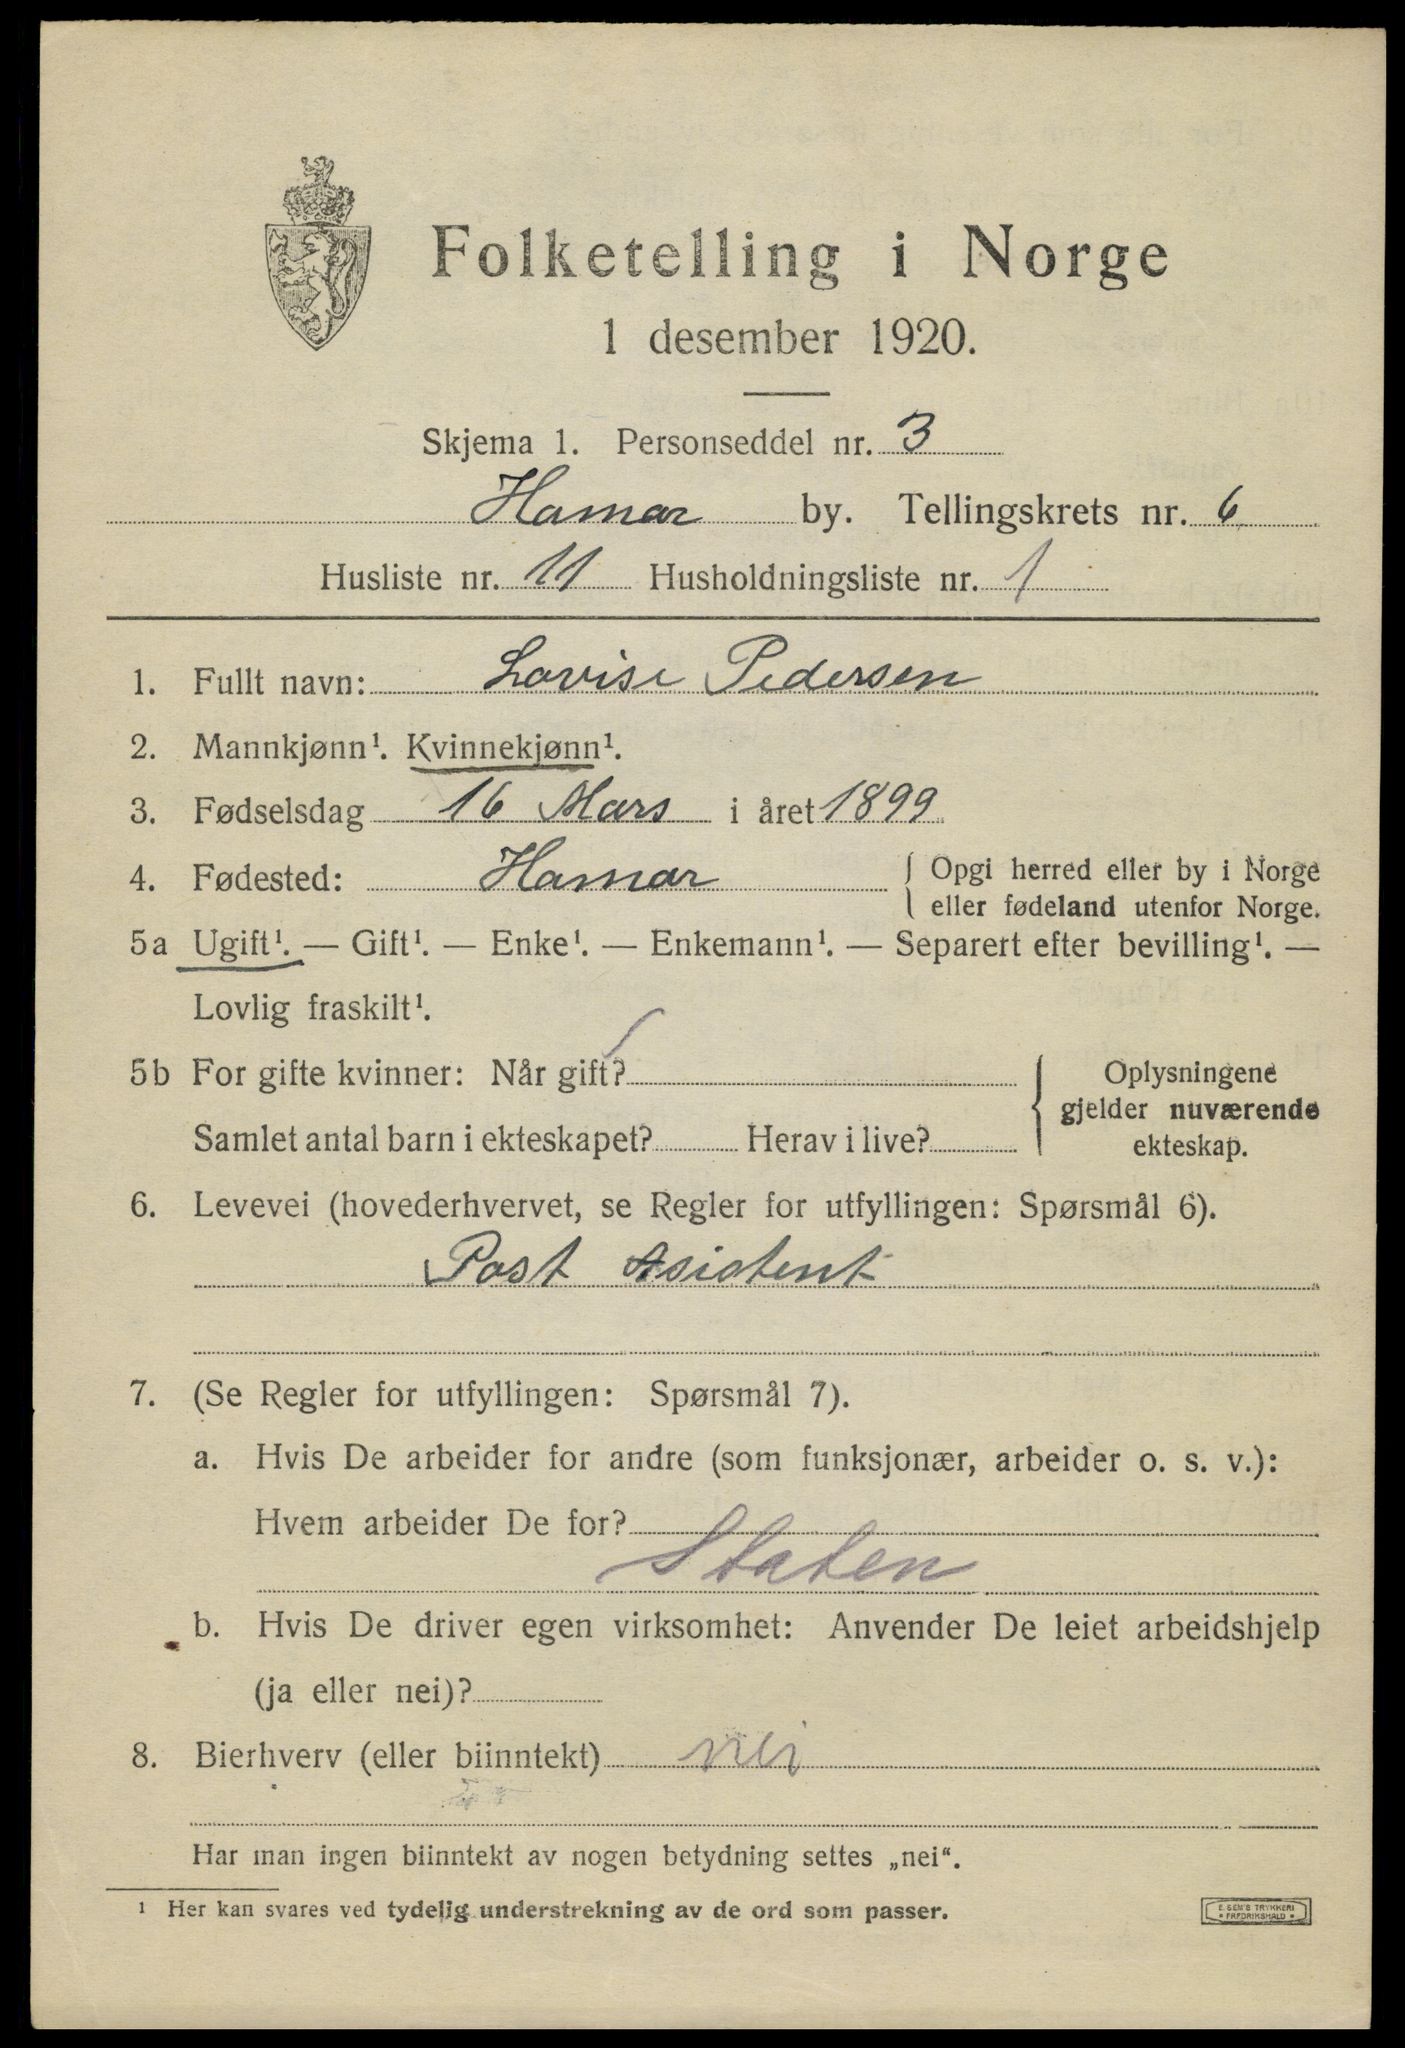 Folketelling i Norge
1 desember 1920.
Skjema 1. Personseddel nr. 3
Hamar by. Tellingskrets nr. 6
Husliste nr. 11 Husholdningsliste nr. 1
1. Fullt navn: Lovise Pedersen
2. Mannkjønn¹. Kvinnekjønn¹.
3. Fødselsdag 16 Mars i året 1899
4. Fødested: Hamar { Opgi herred eller by i Norge
eller fødeland utenfor Norge.
5a Ugift¹. — Gift¹. — Enke¹. — Enkemann¹. — Separert efter bevilling¹. —
Lovlig fraskilt¹.
5b For gifte kvinner: Når gift? { Oplysningene
gjelder nuværende
Samlet antal barn i ekteskapet? Herav i live? ekteskap.
6. Levevei (hovederhvervet, se Regler for utfyllingen: Spørsmål 6).
Post Asistent
7. (Se Regler for utfyllingen: Spørsmål 7).
a. Hvis De arbeider for andre (som funksjonær, arbeider o. s. v.):
Hvem arbeider De for?
Staten
b. Hvis De driver egen virksomhet: Anvender De leiet arbeidshjelp
(ja eller nei)?
8. Bierhverv (eller biinntekt) nei
Har man ingen biinntekt av nogen betydning settes „nei“.
¹ Her kan svares ved tydelig understrekning av de ord som passer.
E. SEM'S TRYKKERI
• FREDRIKSHALD •